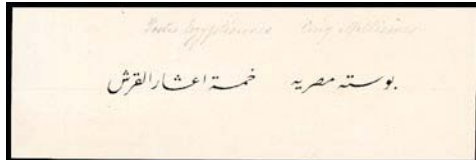 Postes Egyptiennes Cinq Millièmes
بوستہ مصریہ خمسة اعشار القرش